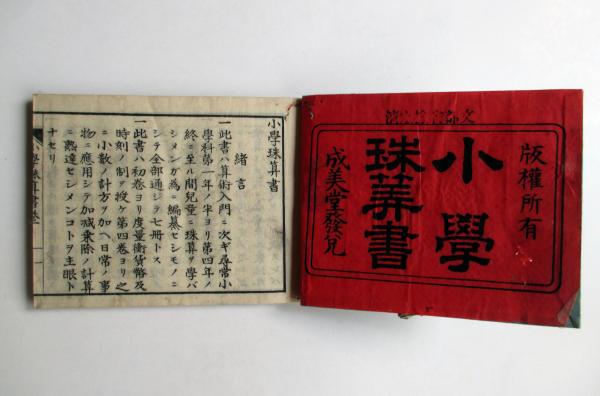 版權所有
小學
珠算書
成美堂發兌
小學珠算書
緒言
一此書ハ算術入門ニ次ギ尋常小
學科第一年ノ半ヨリ第四年ノ
終ニ至ル間兒童ニ珠算ヲ學バ
シメンガ為ニ編纂セシモノニ
シテ全部通ジテ七冊トス
一此書ハ初卷ヨリ度量衡貨幣及
時刻ノ制ヲ授ケ第四卷ヨリ之
ニ小數ノ計方ヲ加ヘ日常ノ事
物ニ應用シテ加減乗除ノ計算
ニ熟達セシメンコトヲ主眼ト
ナセリ
小學珠算書卷